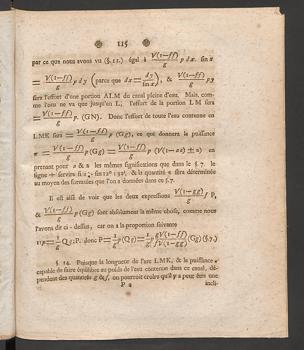 115
par ce que nous avons vu (§. 12.) égal à V(1−ff)/g p dx. sin x
= V(1−ff)/g p dy (parce que dx = dy/sin x), & V(1−ff)/g py
sera l'effort d'une portion ALM du canal pleine d'eau. Mais, com-
me l'eau ne va que jusqu'en L, l'effort de la portion LM sera
= V(1−ff)/g p. (GN). Donc l'effort de toute l'eau contenue en
LMK sera = V(1−ff)/g p (Gg), ce qui donnera la puissance
π = V(1−ff)/g p (Gg) =
prenant pour & les mêmes significations que dans le §. 7. le
signe + servira si & la quantité s sera déterminée
au moyen des formules que l'on a données dans ce §. 7.
Il est aisé de voir que les deux expressions V(1−gg)/g f P,
& V(1−ff)/g p (Gg) sont absolument la même chose, comme nous
l'avons dit ci-dessus, car on a la proportion suivante
donc P = (Gg) (§. 7.)
§. 14. Puisque la longueur de l'arc LMK, & la puissance
capable de faire équilibre au poids de l'eau contenue dans ce canal, dé-
pendent des quantités g & f, on pourroit croire qu'il y a peut être une
P 2
incli-